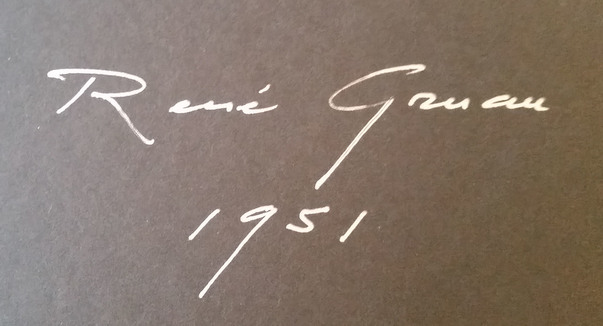 René Gruau
1951